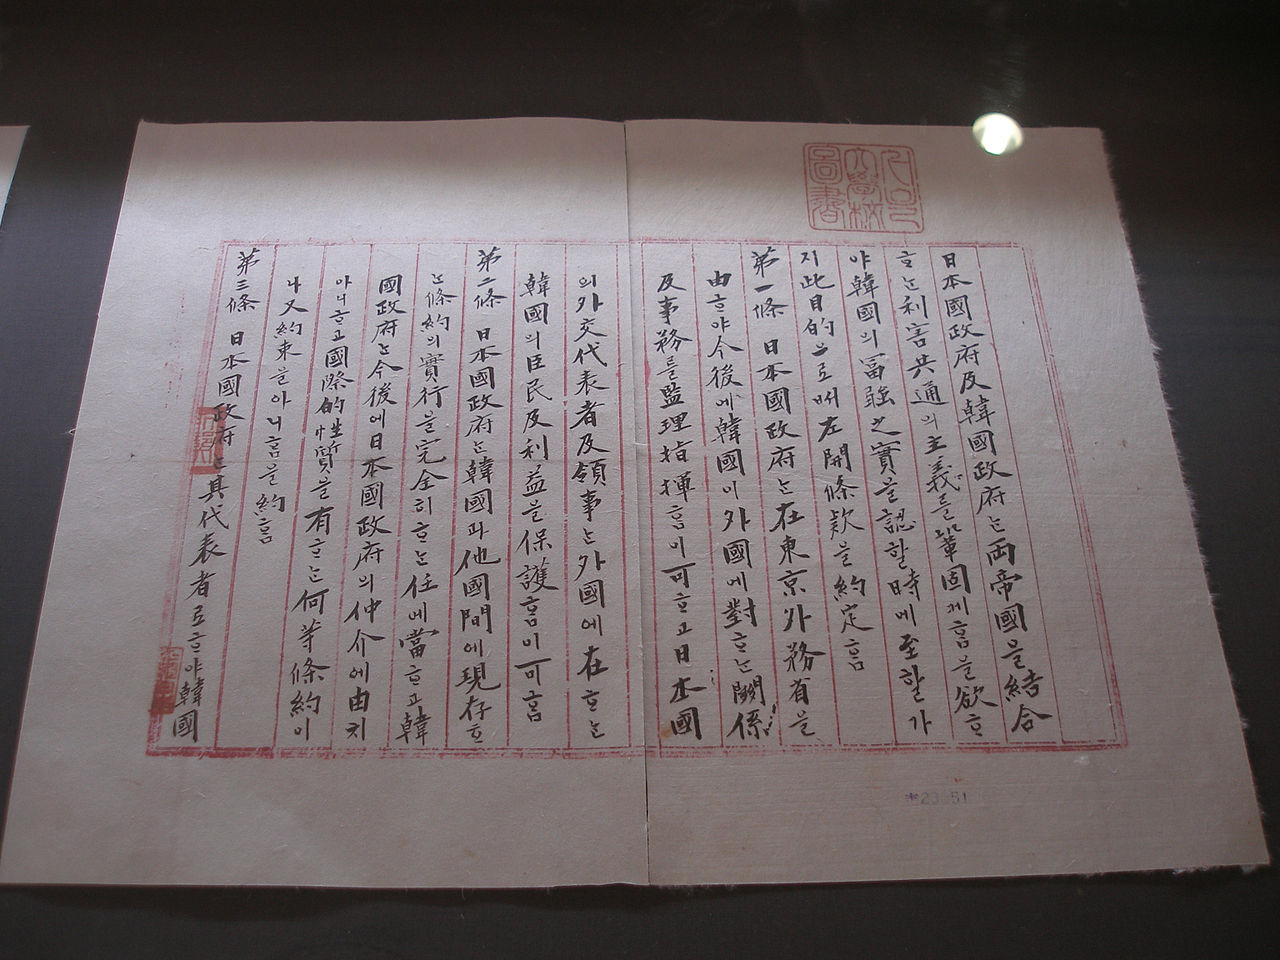 日本國政府及韓國政府는 両帝國을結合
ᄒᆞ는利害共通의主義를鞏固케흠을欲ᄒᆞ
야韓國의富强之實을認할時에至할가
지此目的으로써左開條款을約定흠
第一條 日本國政府는在東京外務省을
由ᄒᆞ야今後에韓國이外國에對ᄒᆞ는關係
及事務를監理指揮흠이可ᄒᆞ고日本國
의外交代表者及領事는外國에在ᄒᆞ는
韓國의臣民及利益을保護흠이可흠
第二條 日本國政府는韓國과他國間에現存ᄒᆞ
는條約의實行을完全히ᄒᆞ는任에當ᄒᆞ고韓
國政府는今後에日本國政府의仲介에由치
아니ᄒᆞ고國際的性質을有ᄒᆞ는何等條約이
나又約束을아니흠을約흠
第三條 日本國政府는其代表者로ᄒᆞ야韓國
서울
大學校
圖書